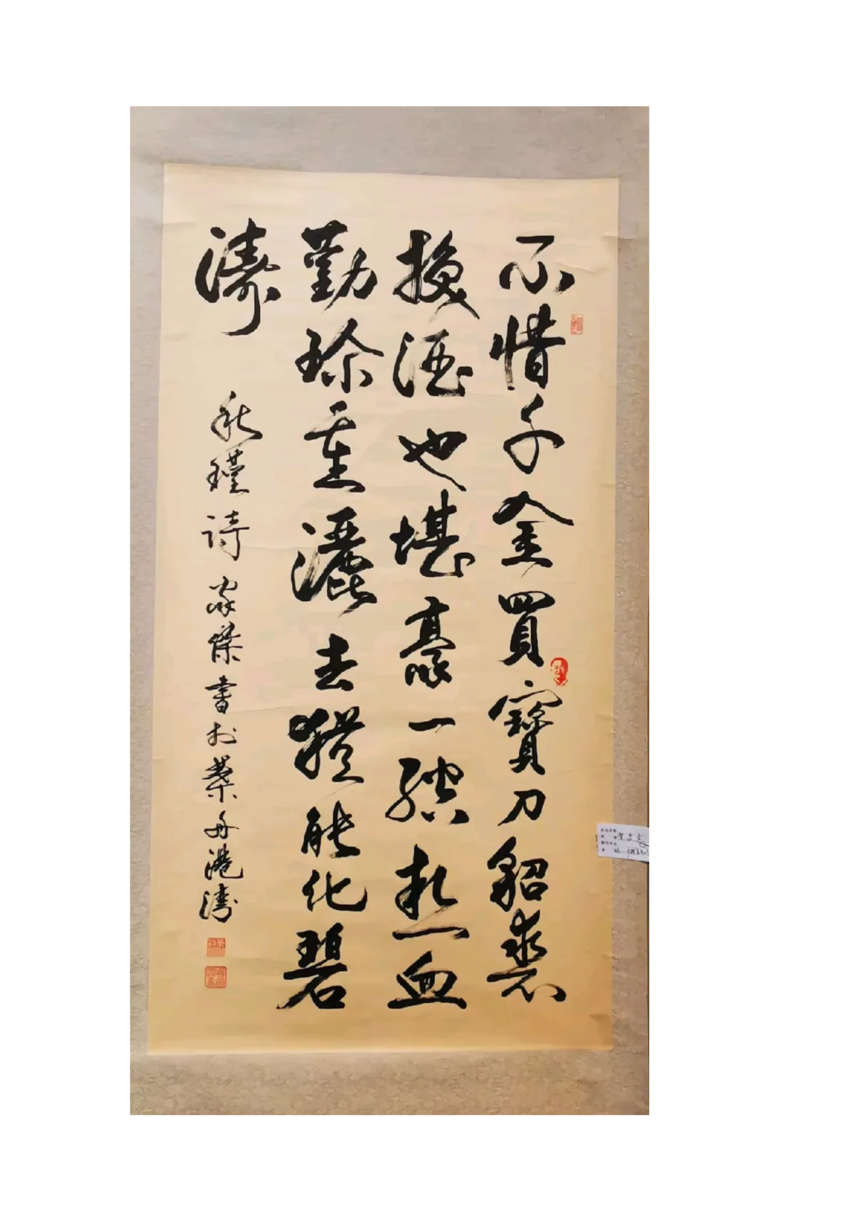 不惜千金買寶刀貂裘
換酒也堪豪一腔热血
勤珍重灑去猶能化碧
濤
秋瑾詩 家傑書於葉舟港灣